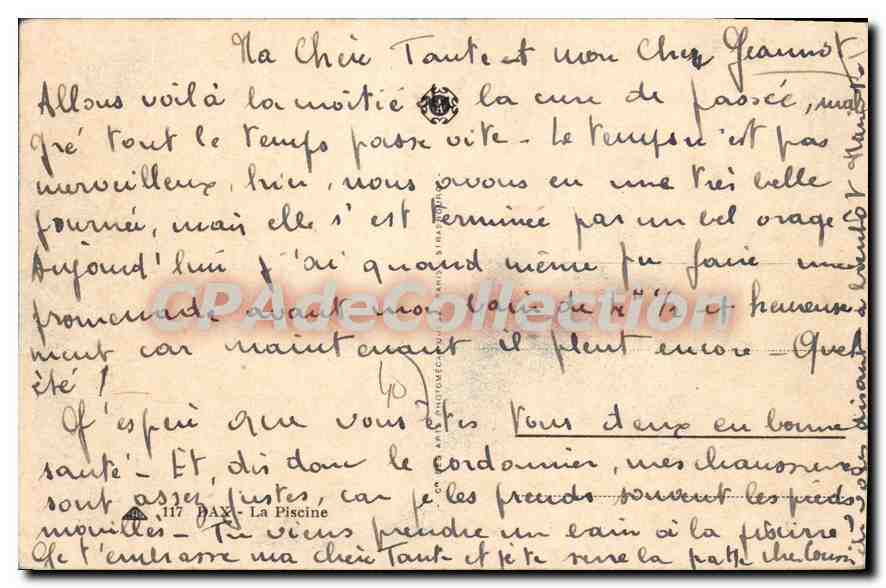 Ma Chère Tante et mon Cher Jeannot
Allons voilà la moitié de la cure de passée, mal
gré tout le temps passe vite - Le temps n'est pas
merveilleux, hier, nous avons eu une très belle
journée, mais elle s'est terminée par un bel orage
Aujourd'hui j'ai quand même pu faire une
promenade avant mon bain de h 1/2 et heureuse
ment car maintenant il pleut encore - Quel
été !
40
J'espère que vous êtes tous deux en bonne
santé - Et, dis donc le cordonnier, mes chaussures
sont assez justes, car je les prends souvent les pieds
mouillés - Tu viens prendre un bain à la piscine ?
Je t'embrasse ma chère Tante et je te serre la patte cher
en vous disant à bientôt
CPAdeCollection
117 DAX - La Piscine